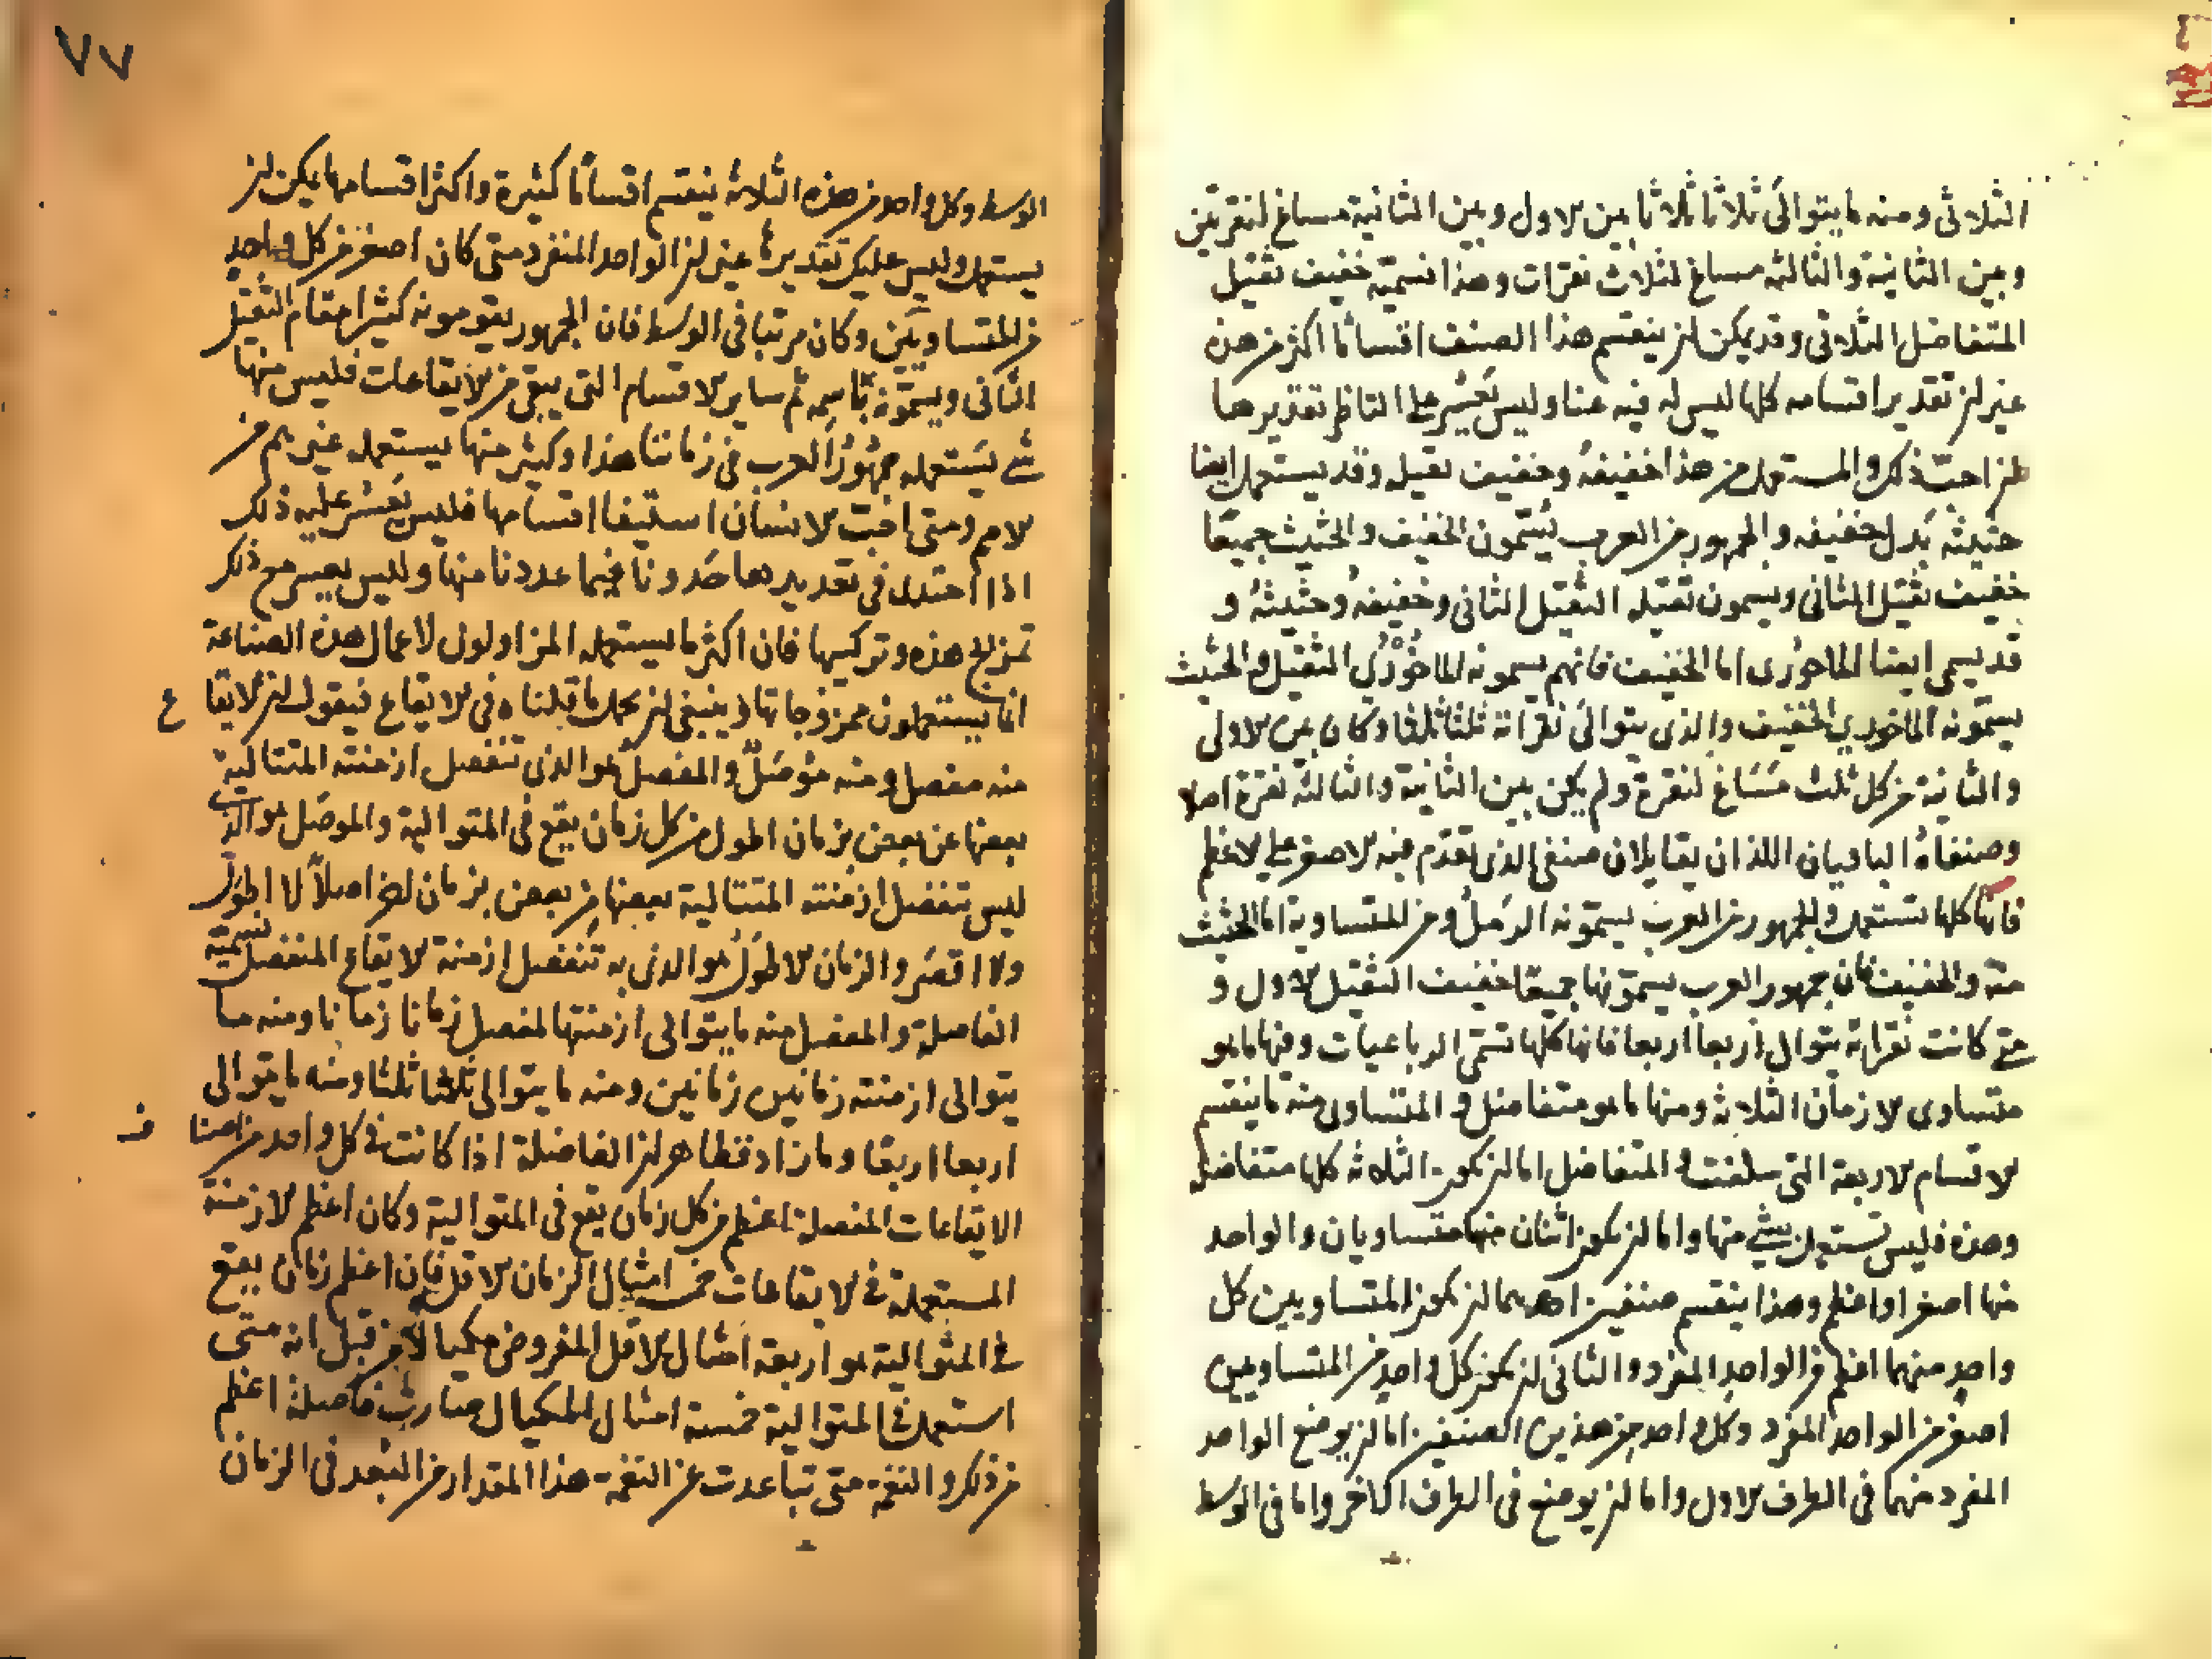 الثلاثى ومنه ما يتوالى ثلاثا ثلاثا بين الاول وبين الثانية مساغ لنقرتين
وبين الثانية والثالثة مساغ لثلاث نقرات وهذا نسميه خفيف ثقيل
المتفاضل الثلاثى وقد يمكن ان ينقسم هذا الصنف اقساما اكثر من هذه
غير ان تقدير اقسامه كلها ليس له فيه عنا وليس يعسر على الناظر تقديرها
ان احب ذلك والمستعمل من هذا خفيفه وخفيف ثقيله وقد يستعمل ايضا
حثيثه بدل خفيفه والجمهور من العرب يسمون الخفيف والحثيث جميعا
خفيف ثقيل الثانى ويسمون ثقيله الثقيل الثانى وخفيفه وحثيثه و
قد يسمى ايضا الماخورى اما الخفيف فانهم يسمونه الماخورى الثقيل والحثيث
يسمونه الماخورى الخفيف والذى يتوالى نقراته ثلثا ثلثا وكان بين الاولى
والثانية من كل ثلث مساغ لنقرة ولم يكن بين الثانية والثالثة نقرة اصلا
وصنفاه الباقيان اللذان يقابلان صنفى الذى تقدم فيه الاصغر على الاعظم
فانها كلها تستعمل والجمهور من العرب يسمونه الرمل ومن المتساوية اما الحثيث
منه والخفيف فان جمهور العرب يسمونها جميعا خفيف الثقيل الاول و
متى كانت نقراته يتوال اربعا اربعا فانها كلها تسمى الرباعيات ومنها ما هو
متساوى الازمان الثلاثة ومنها ما هو متفاضل والمتساوى منه ما ينقسم
الاقسام الاربعة التى سلفت والمتفاضل اما ان يكون الثلاثة كلها متفاضلة
وهذه فليس تستعمل شئ منها واما ان يكون اثنان منها متساويان والواحد
منها اصغر او اعظم وهذا ينقسم صنفين احدهما ان يكون المتساويين كل
واحد منهما اعظم من الواحد المفرد والثانى ان يكون كل واحد من المتساويين
اصغر من الواحد المفرد وكل واحد من هذين الصنفين اما ان يوضع الواحد
المفرد منهما فى الطرف الاول واما ان يوضع فى الطرف الاخر واما فى الوسط
٧٧
الوسط وكل واحد من هذه الثلاثة ينقسم اقساما كثيرة واكثر اقسامها يمكن ان
يستعمل وليس عليك تقديرها غير ان الواحد المنفرد متى كان اصغر من كل واحد
من المتساويين وكان مرتبا فى الوسط فان الجمهور يقومونه كثيرا مقام الثقيل
الثانى ويسمونه باسمه ثم ساير الاقسام التى يبقى من الايقاعات فليس منها
شئ يستعمله جمهور العرب فى زماننا هذا وكثير منها يستعمله غيرهم من
الامم ومتى احب الانسان استيفا اقسامها فليس يعسر عليه ذلك
اذا احتدى فى تقديرها حدونا فيما عددنا منها وليس يعسر مع ذلك
تمزيج هذه وتركيبها فان اكثر ما يستعمله المزاولون لاعمال هذه الصناعة
انما يستعملون ممزوجاتها وينبغى ان نجمل ما قلناه فى الايقاع فنقول ان الايقاع
منه مفصل ومنه موصل والمفصل هو الذى تنفصل ازمنته المتتالية
بعضها عن بعض بزمان اطول من كل زمان يقع فى المتوالية والموصل هو الذى
ليس تنفصل ازمنته المتتالية بعضها من بعض بزمان اخر اصلا لا اطول
ولا اقصر والزمان الاطول هو الذى به تنفصل ازمنة الايقاع المنفصل نسميه
الفاصلة والمفصل منه ما يتوالى ازمنتها المفصل زمانا زمانا ومنه ما
يتوالى ازمنته زمانين زمانين ومنه ما يتوالى ثلثا ثلثا ومنه ما يتوالى
اربعا اربعا وما زاد فظاهر ان الفاصلة اذا كانت فى كل واحد من اصناف
الايقاعات المفصلة اعظم من كل زمان يقع فى المتوالية وكان اعظم الازمنة
المستعملة فى الايقاعات خمسة امثال الزمان الاقل فان اعظم زمان يقع
فى المتوالية هو اربعة امثال الاقل المفروض مكيالا من قبل انه متى
استعمل فى المتوالية خمسة امثال المكيال صارت فاصلة اعظم
من ذلك والنغمة متى تباعدت عن النغمة هذا المقدار من البعد فى الزمان